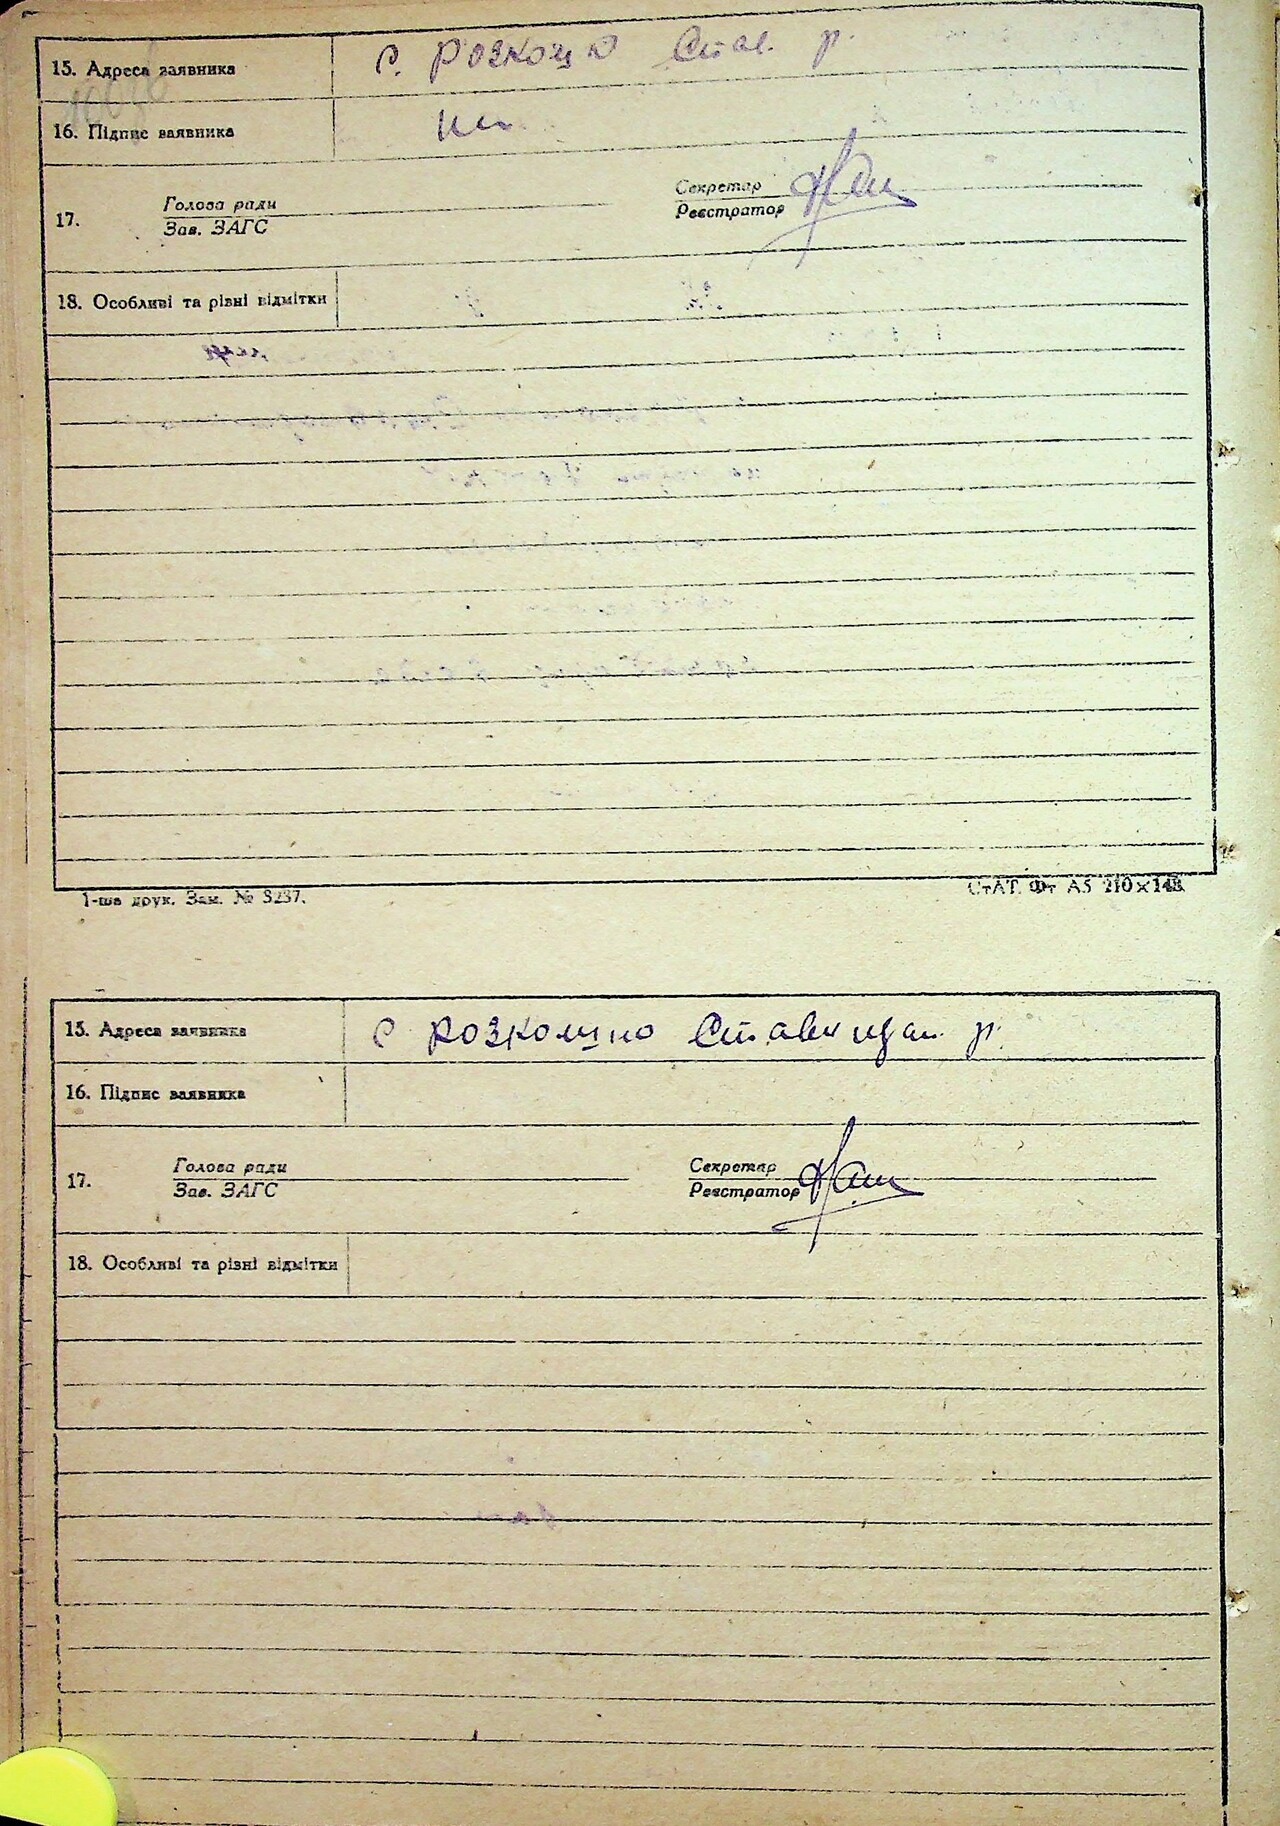 15. Адреса заявника с. Розкошю Став. р.
16. Підпис заявника
Секретар
Голова ради
Реєстратор
17.
Зав. ЗАГС
18. Особливі та різні відмітки
1-ша друк. Зам. № 3237.
СтАТ. Фт А5 210×148
15. Адреса заявника с Розкошно Ставищан. р.
16. Підпис заявника
Голова ради Секретар
17.
Зав. ЗАГС Реєстратор
18. Особливі та різні відмітки